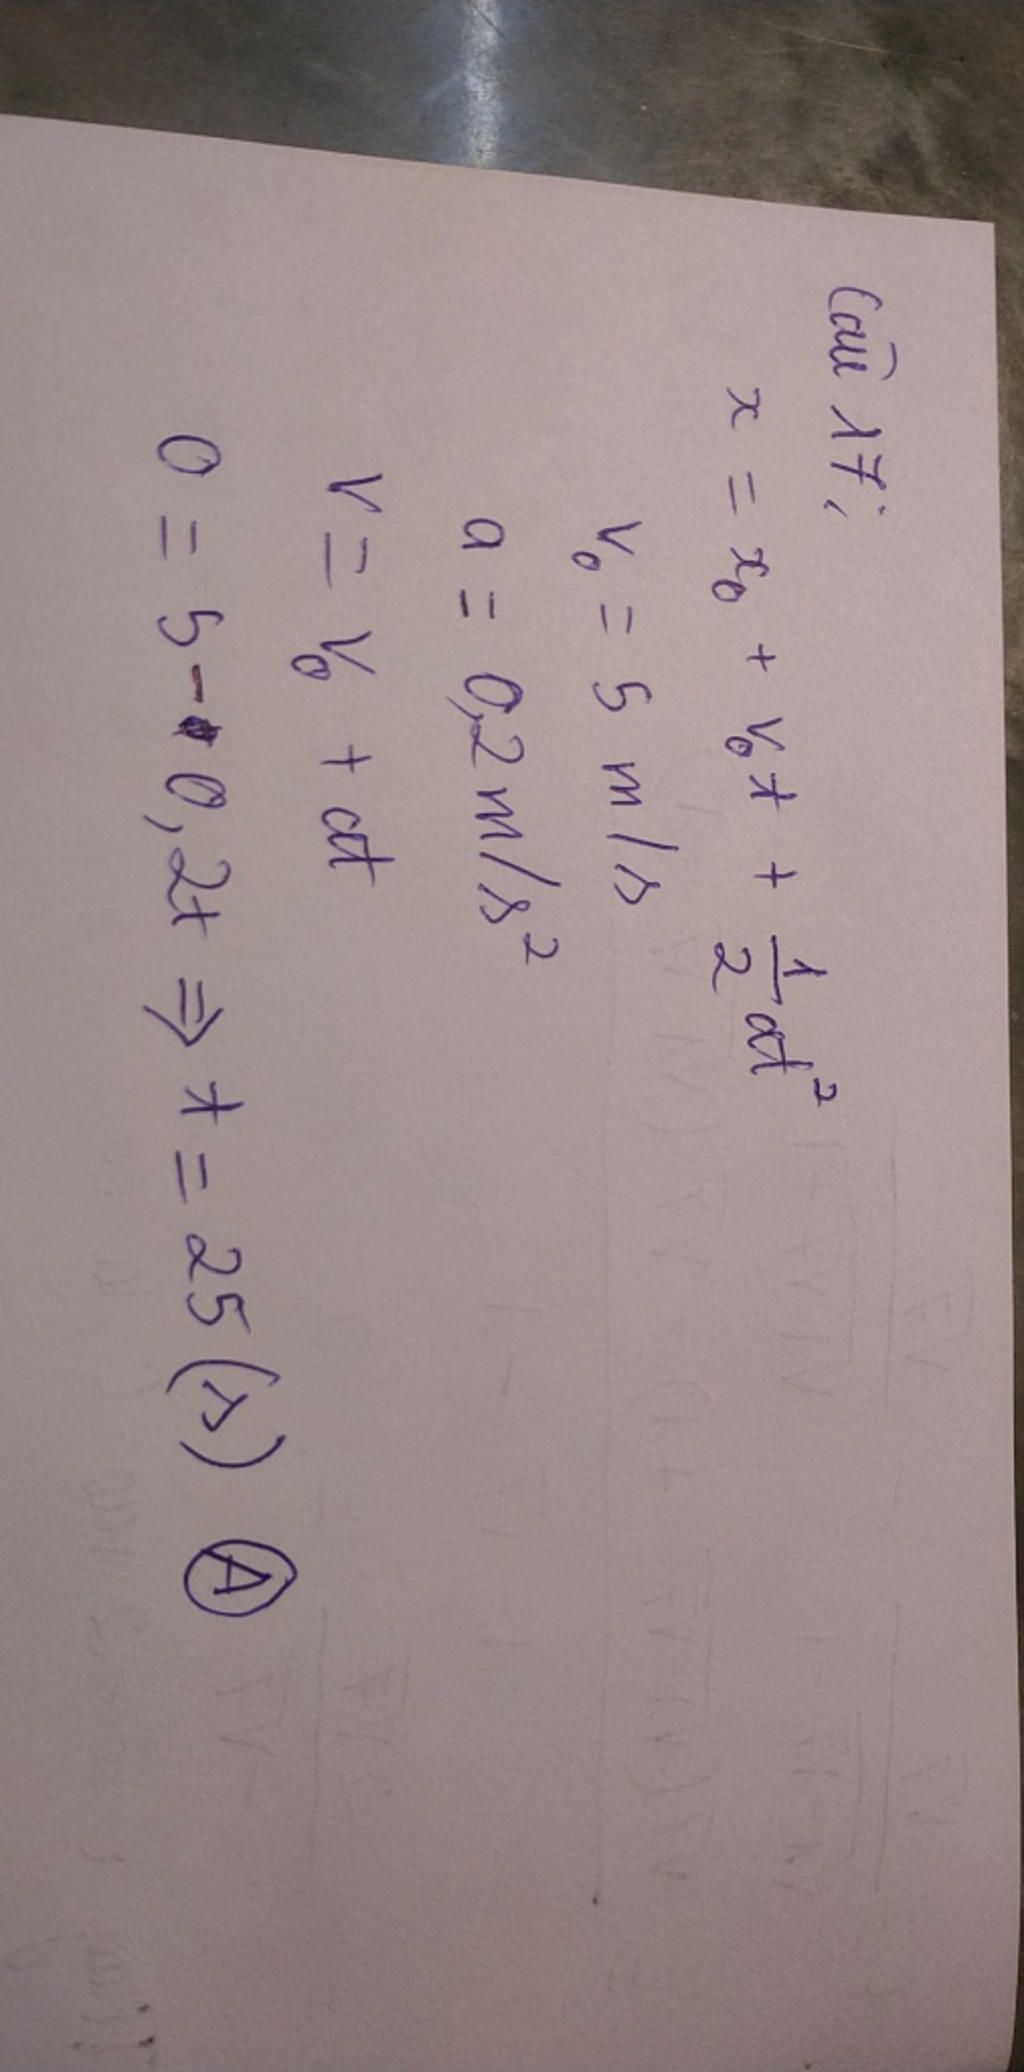 Câu 17:
x = x₀ + v₀t + 1/2 at²
v₀ = 5 m/s
a = 0,2 m/s²
v = v₀ + at
0 = 5 - 0,2t ⇒ t = 25 (s) A